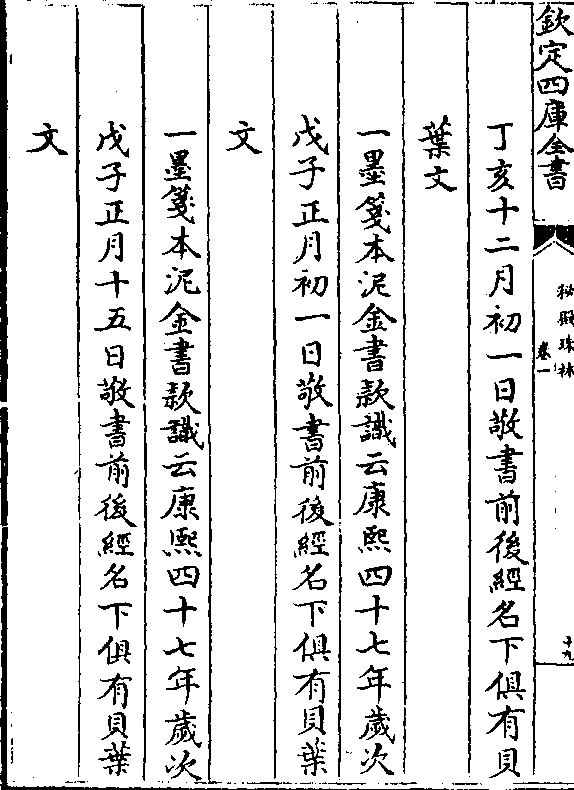 欽定四庫全書
秘殿珠林
卷一
十九
丁亥十二月初一日敬書前後經名下俱有貝
葉文
一墨箋本泥金書款識云康熙四十七年歲次
戊子正月初一日敬書前後經名下俱有貝葉
文
一墨箋本泥金書款識云康熙四十七年歲次
戊子正月十五日敬書前後經名下俱有貝葉
文